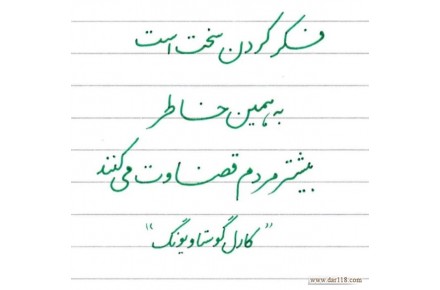 فکر کردن سخت است
به همین خاطر
بیشتر مردم قضاوت می کنند
"کارل گوستاو یونگ"
www.dar118.com